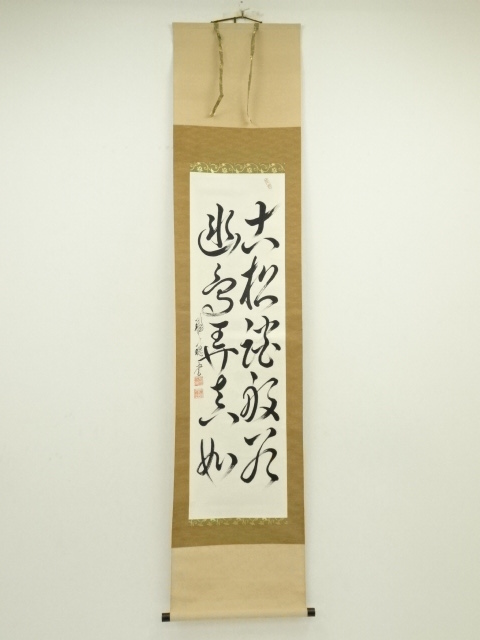 古松談般若
幽鳥弄真如